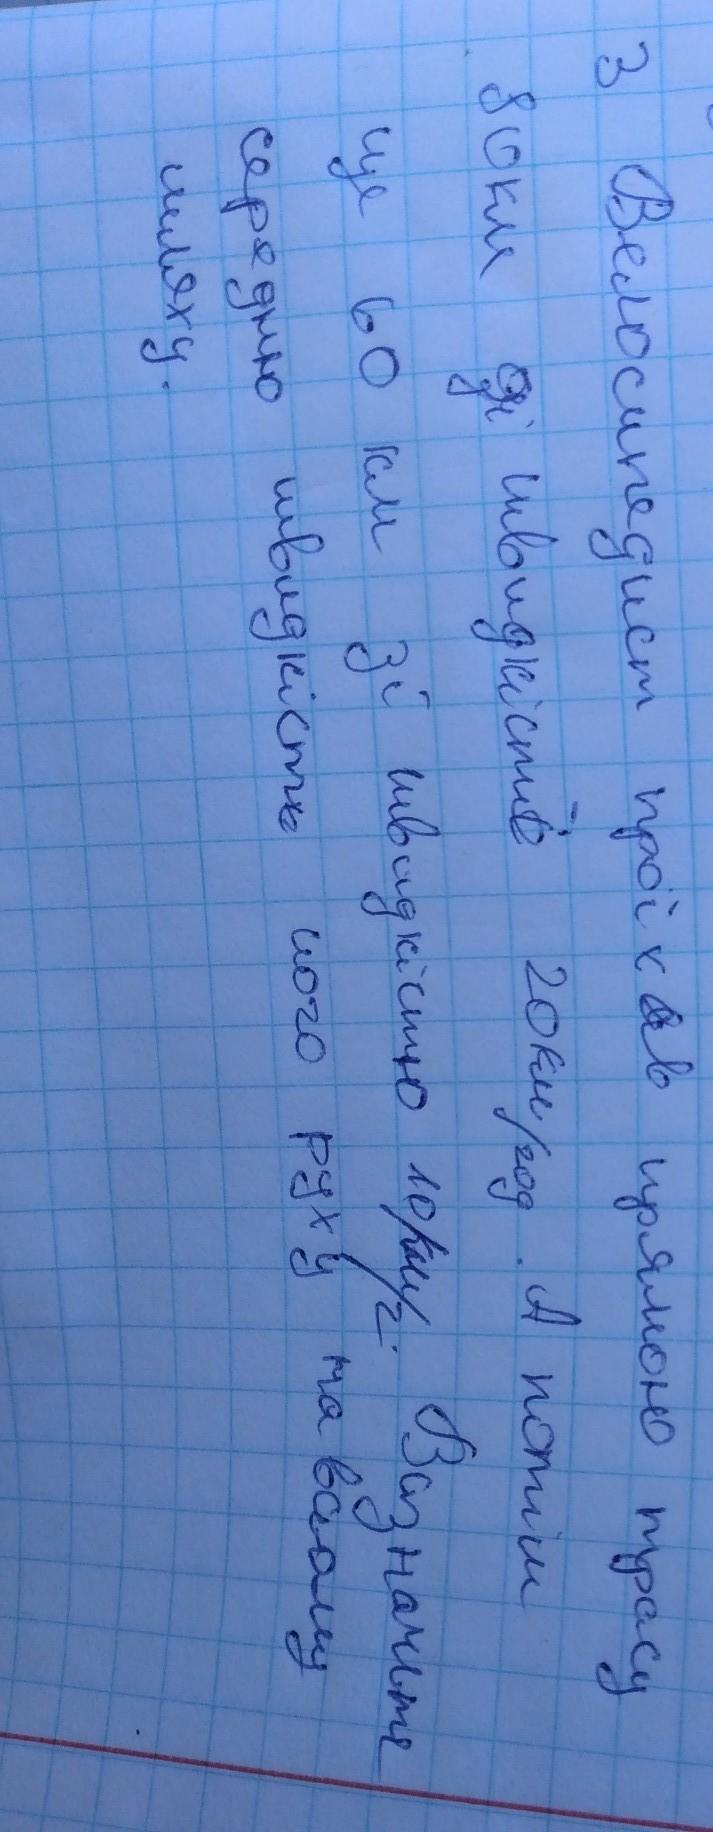 3 Велосипедист проїхав прямою трасу
80км зі швидкістю 20км/год. А потім
ще 60 км зі швидкістю 10км/г. Визначите
середню швидкість його руху на всьому
шляху.